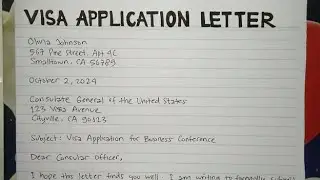 VISA APPLICATION LETTER
Olivia Johnson
567 Pine Street, Apt 4C
Smalltown, CA 56789
October 2, 2024
Consulate General of the United States
123 Visa Avenue
Cityville, CA 90113
Subject: Visa Application for Business Conference
Dear Consular Officer,
I hope this letter finds you well. I am writing to formally submit